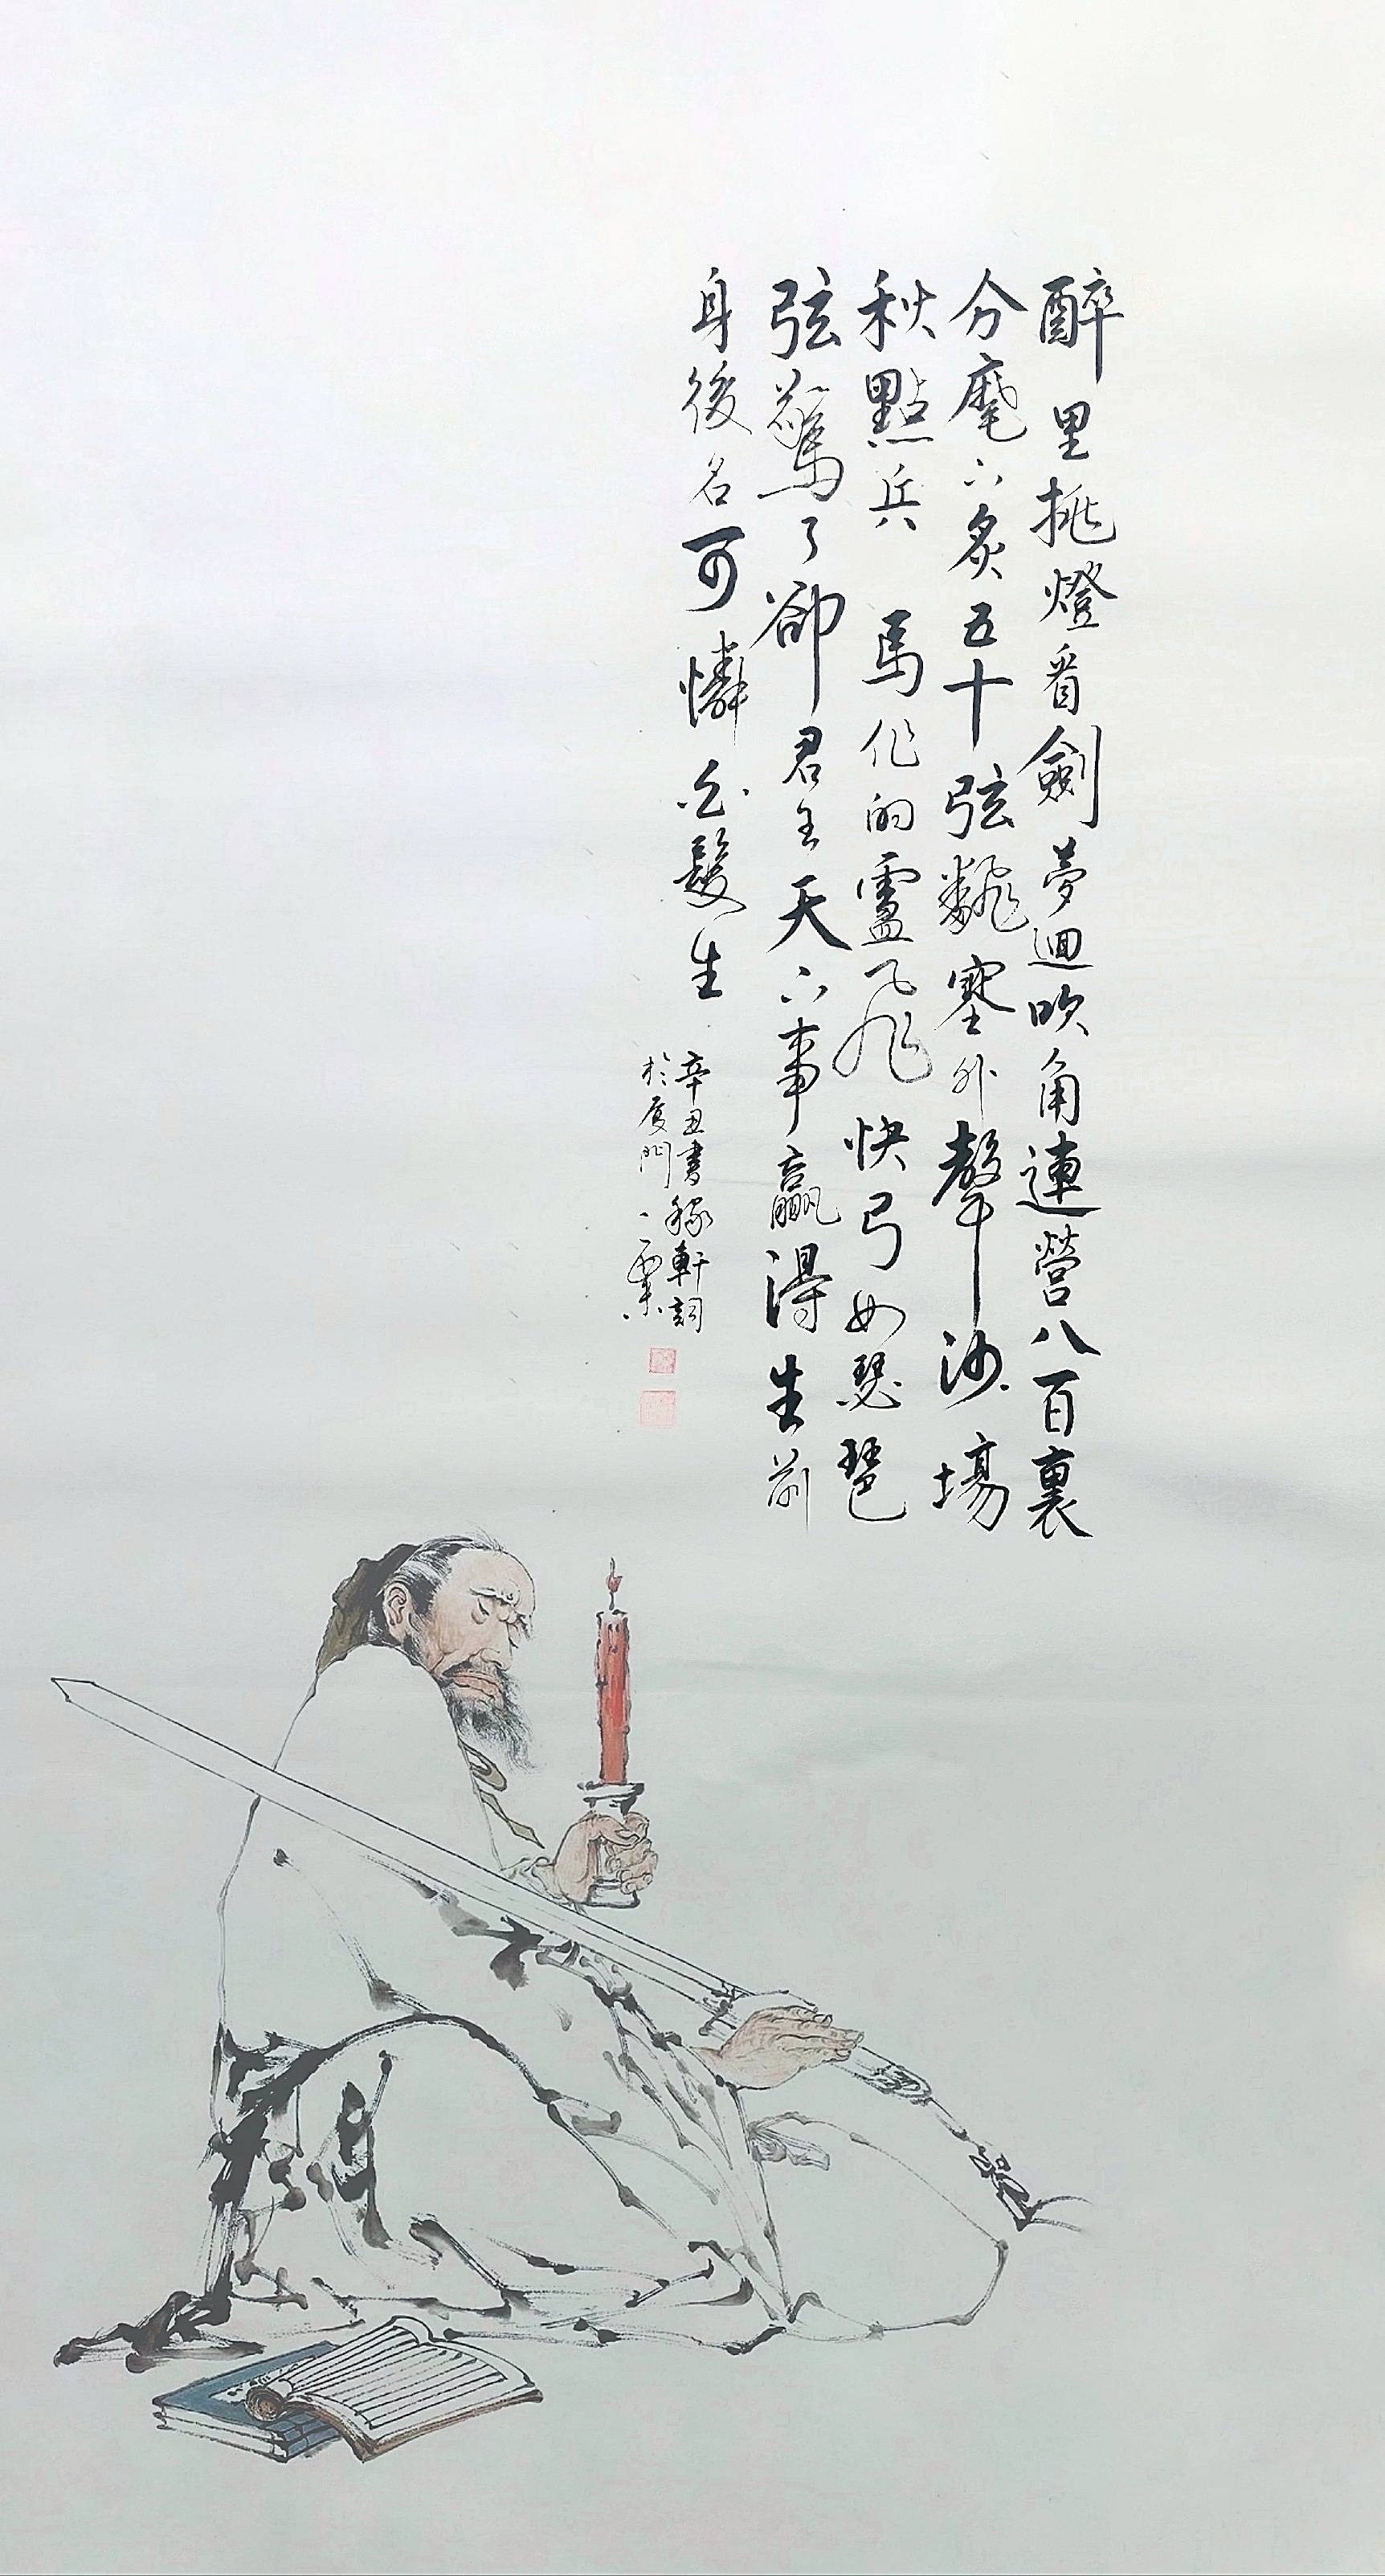 醉里挑燈看劍夢迴吹角連營八百裏
分麾下炙五十弦翻塞外聲沙場
秋點兵馬作的盧飛快弓如瑟琶
弦驚了卻君王天下事贏得生前
身後名可憐白髮生
辛丑書稼軒詞
於廈門